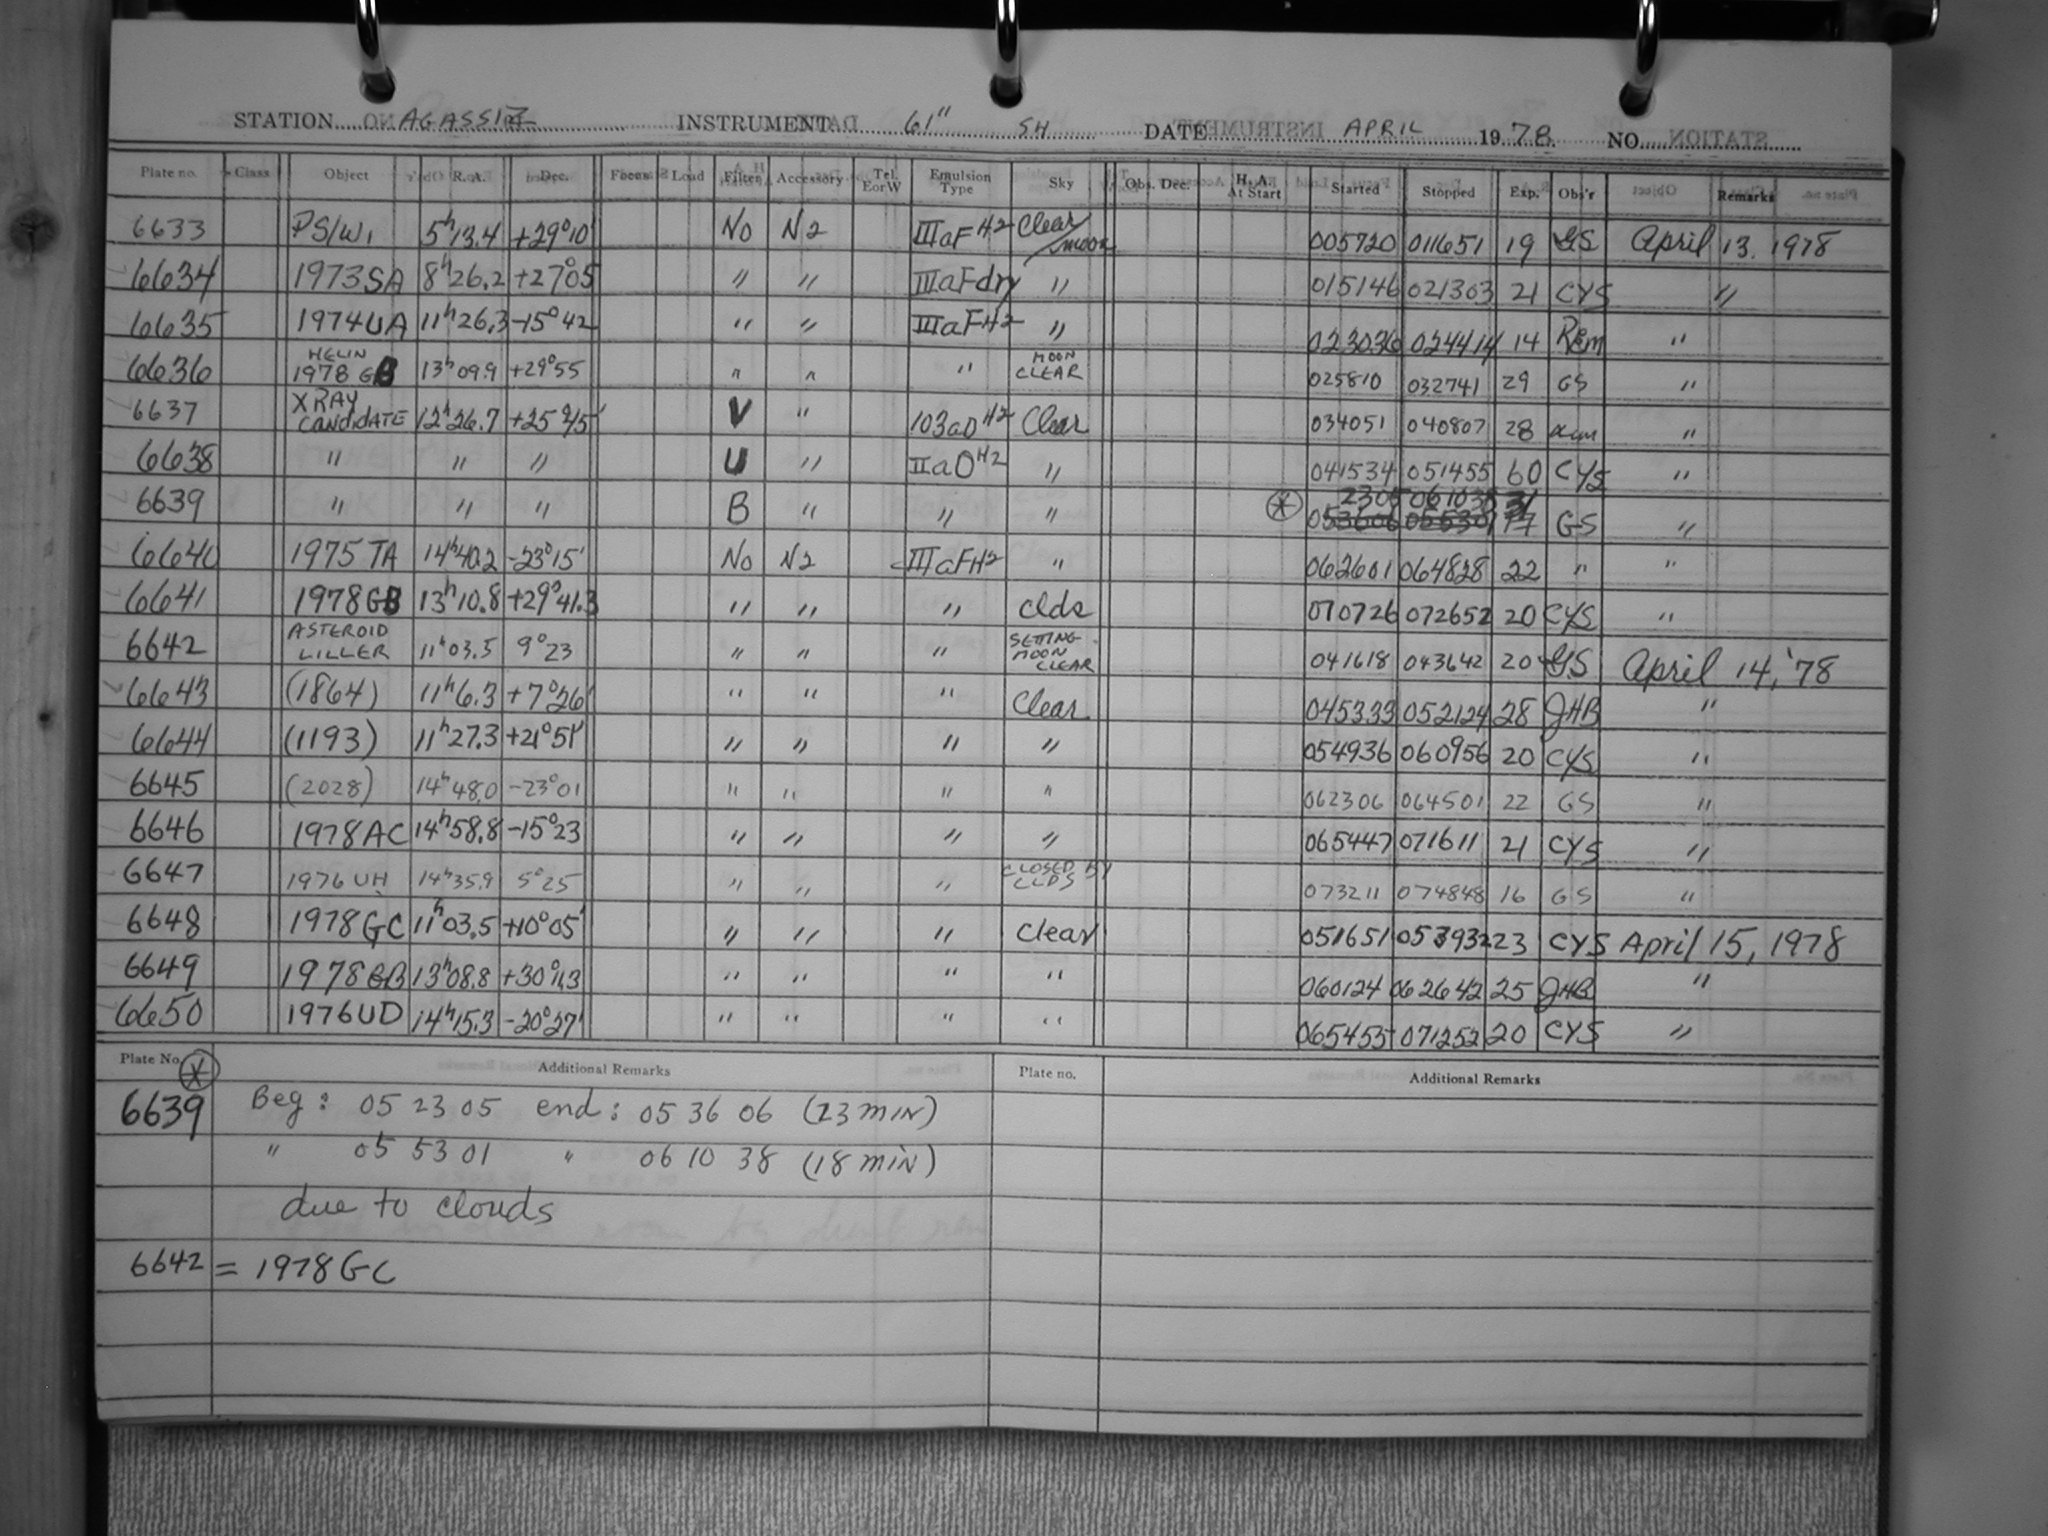 STATION AGASSIZ INSTRUMENT 61" SH DATE APRIL 1978. NO.
Plate no. Class Object R. A. Dec. Focus Load Filter Accessory Tel. E or W Emulsion Type Sky Obs. Dec. H. A. At Start Started Stopped Exp. Obs'r Remarks
6633 PS/W1 5h13.4 +29°10' No N2 IIIaF H2 Clear/moon 005720 011651 19 GS April 13. 1978
6634 1973SA 8h26.2 +27°05 " " IIIaF dry " 015146 021303 21 CYS "
6635 1974UA 11h26.3 -15°42 " " IIIaF H2 " 023036 024414 14 Rem "
6636 HELIN 1978 GB 13h09.9 +29°55 " " " MOON CLEAR 025810 032741 29 GS "
6637 X RAY CANDIDATE 12h26.7 +25°15' V " 103aD H2 Clear 034051 040807 28 "
6638 " " " U " IIaO H2 " 041534 051455 60 CYS "
6639 " " " B " " " * 2305 061038 31 053606 055301 17 GS "
6640 1975 TA 14h40.2 -23°15' No N2 IIIaF H2 " 062601 064828 22 " "
6641 1978GB 13h10.8 +29°41.3 " " " clds 070726 072652 20 CYS "
6642 ASTEROID LILLER 11h03.5 9°23 " " " SETTING MOON CLEAR 041618 043642 20 GS April 14, '78
6643 (1864) 11h6.3 +7°26' " " " Clear 045333 052124 28 JHB "
6644 (1193) 11h27.3 +21°51' " " " " 054936 060956 20 CYS "
6645 (2028) 14h48.0 -23°01 " " " " 062306 064501 22 GS "
6646 1978AC 14h58.8 -15°23 " " " " 065447 071611 21 CYS "
6647 1976 UH 14h35.9 5°25 " " " CLOSED BY CLDS 073211 074848 16 GS "
6648 1978GC 11h03.5 +10°05' " " " Clear 051651 053932 23 CYS April 15, 1978
6649 1978GB 13h08.8 +30°1.3 " " " " 060124 062642 25 JHB "
6650 1976UD 14h15.3 -20°27' " " " " 065455 071252 20 CYS "
Plate No. * Additional Remarks Plate no. Additional Remarks
6639 Beg: 05 23 05 end: 05 36 06 (13 MIN)
" 05 53 01 " 06 10 38 (18 MIN)
due to clouds
6642 = 1978GC